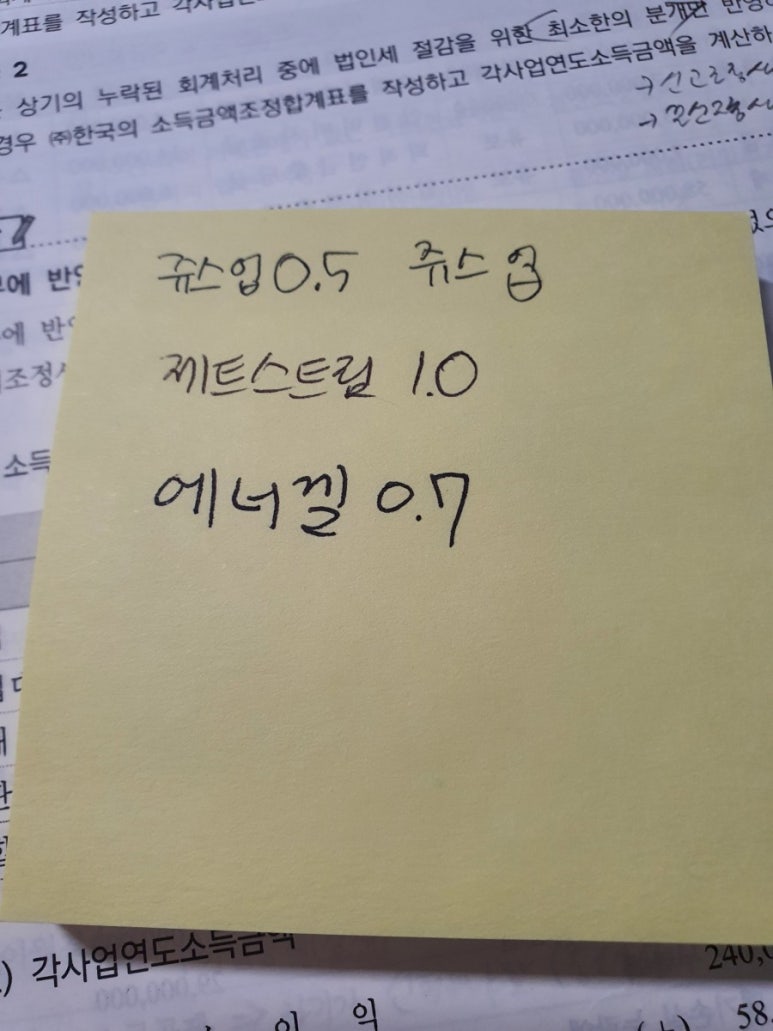 계표를 작성하고 각사업연
2
상기의 누락된 회계처리 중에 법인세 절감을 위한 최소한의 분개만 반영
경우 ㈜한국의 소득금액조정합계표를 작성하고 각사업연도소득금액을 계산하
→ 신고조정
→ 결산조정
에 반영
에 반
조정
쥬스업 0.5 쥬스 업
제트스트림 1.0
에너겔 0.7
소득
) 각사업연도소득금액
240,0
이 익
58.